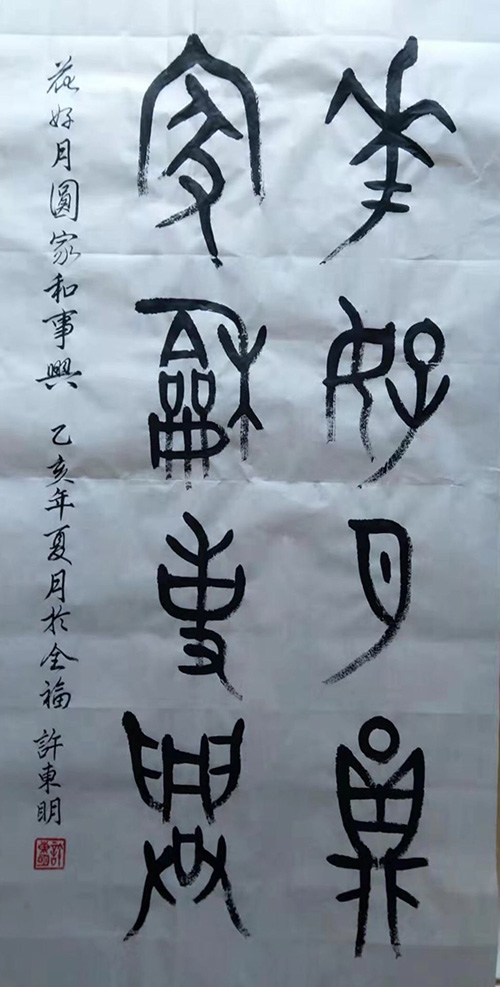 花好月圓
家和事興
花好月圓家和事興 乙亥年夏月於全福 許東明